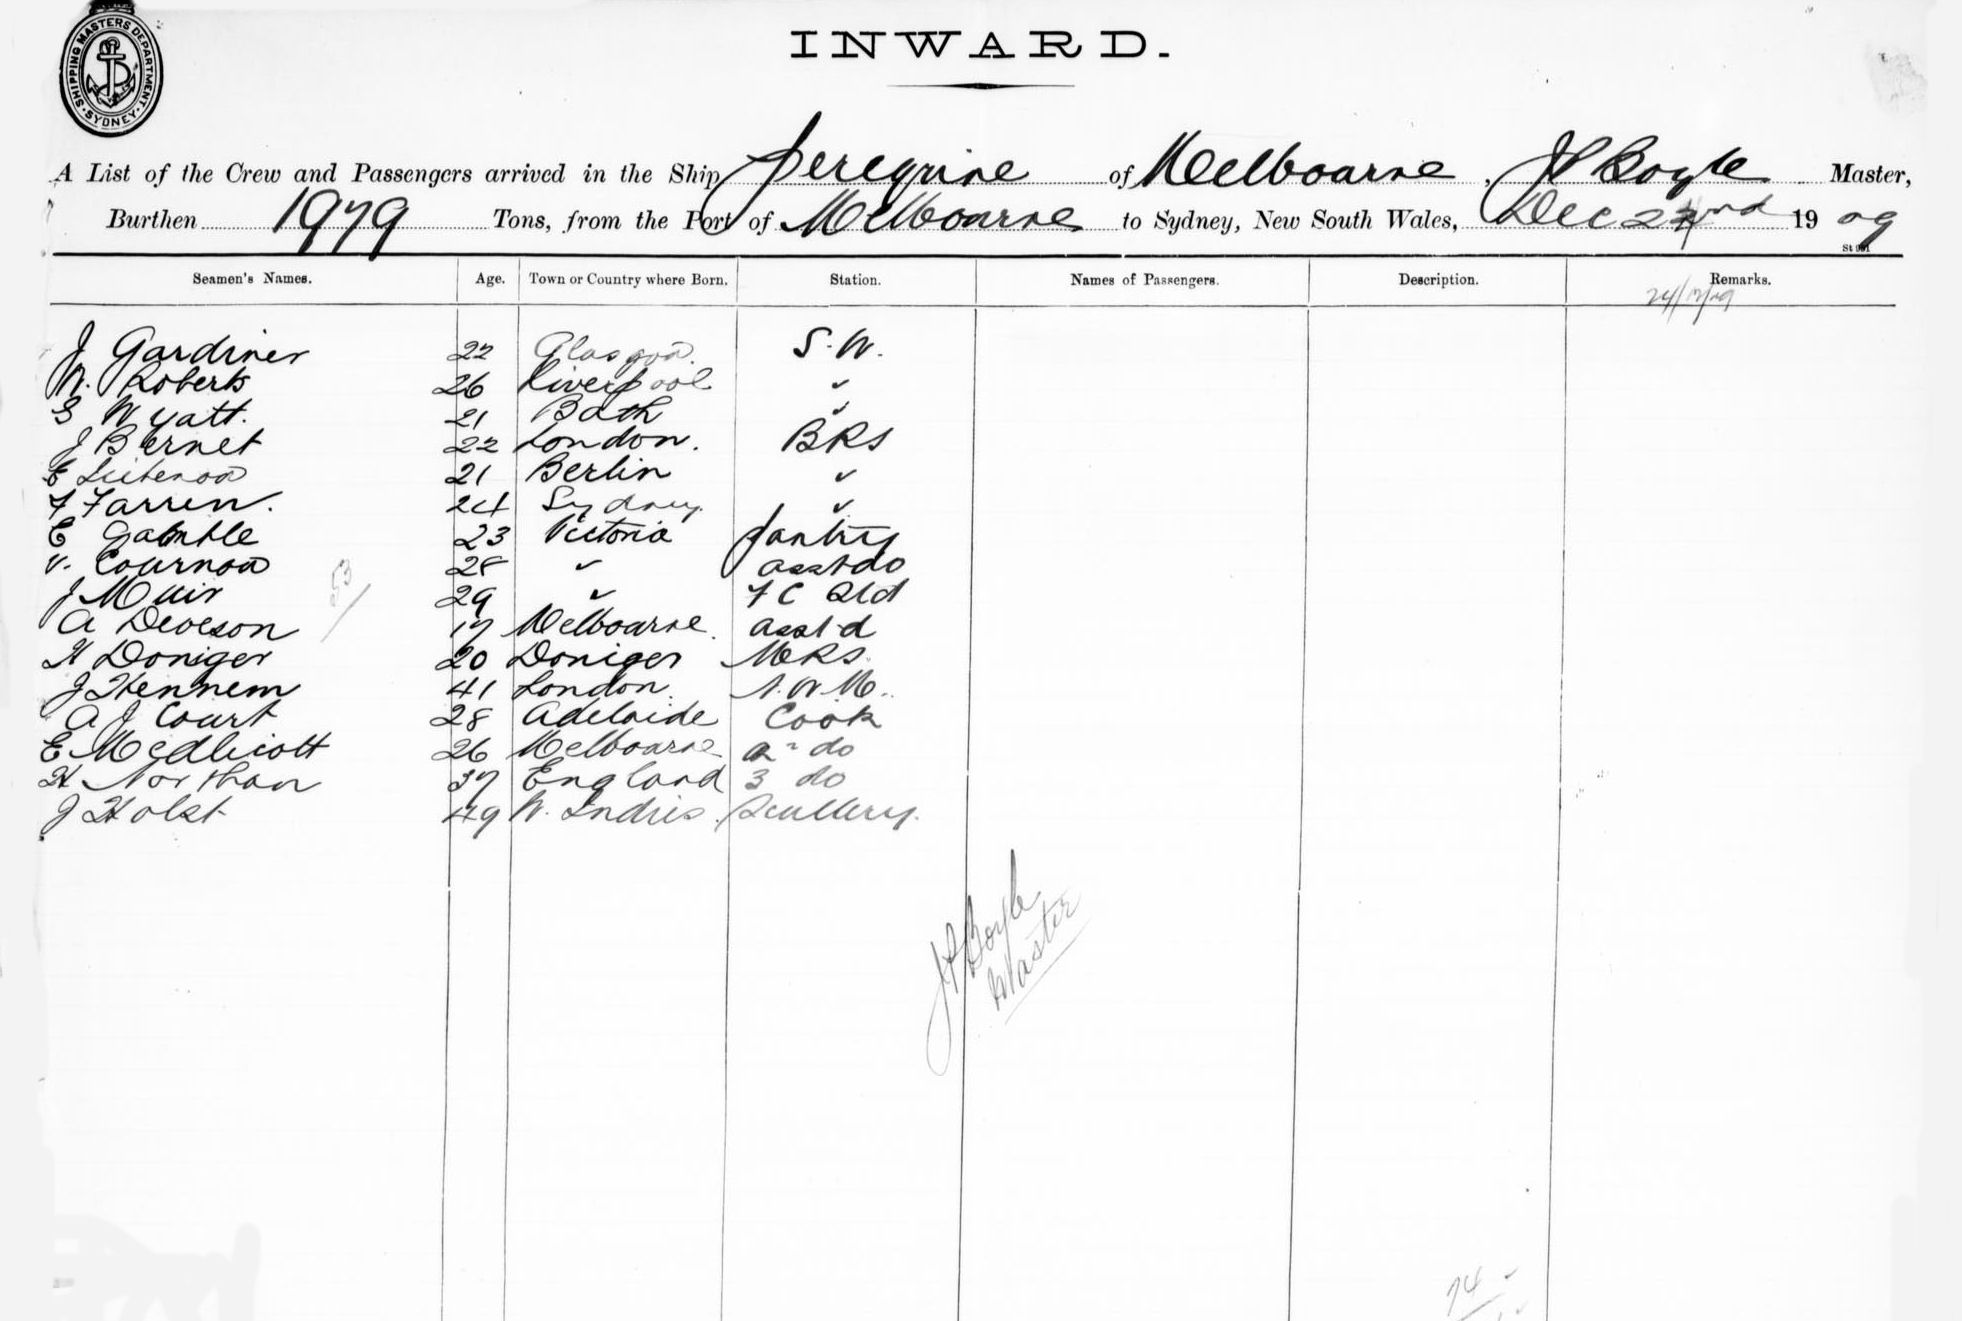 SHIPPING MASTERS DEPARTMENT. SYDNEY
INWARD.
A List of the Crew and Passengers arrived in the Ship Peregrine of Melbourne, J P Boyle Master,
Burthen 1979 Tons, from the Port of Melbourne to Sydney, New South Wales, Dec 22nd 1909
St 961
Seamen's Names. Age. Town or Country where Born. Station. Names of Passengers. Description. Remarks.
24/12/09
J Gardiner 22 Glasgow. S. W.
W. Roberts 26 Liverpool "
G Wyatt. 21 Bath "
J Bernet 22 London. BRS
E 21 Berlin "
F Farren. 24 Sydney. "
E Gamble 23 Victoria Pantry
V. Cournow 28 " asst do
J Muir 29 " F C
A Deveson 17 Melbourne. asst d
H Doniger 20 Doniger MRS.
J Hennem 41 London.
A J Court 28 Adelaide Cook
E Medlicott 26 Melbourne 2 do
H Northan 37 England 3 do
J Holst 49 W. Indies. Scullery.
53/
J P Boyle
Master
74